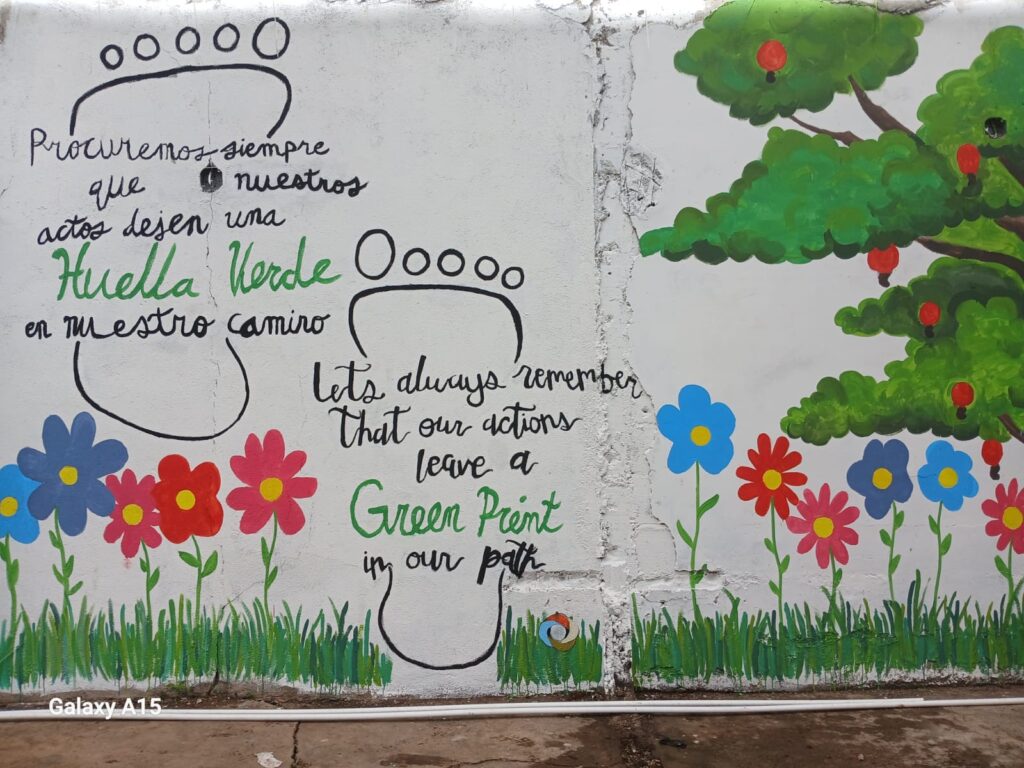 Procuremos siempre
que nuestros
actos dejen una
Huella Verde
en nuestro camino
Lets always remember
That our actions
leave a
Green Print
in our path
Galaxy A15